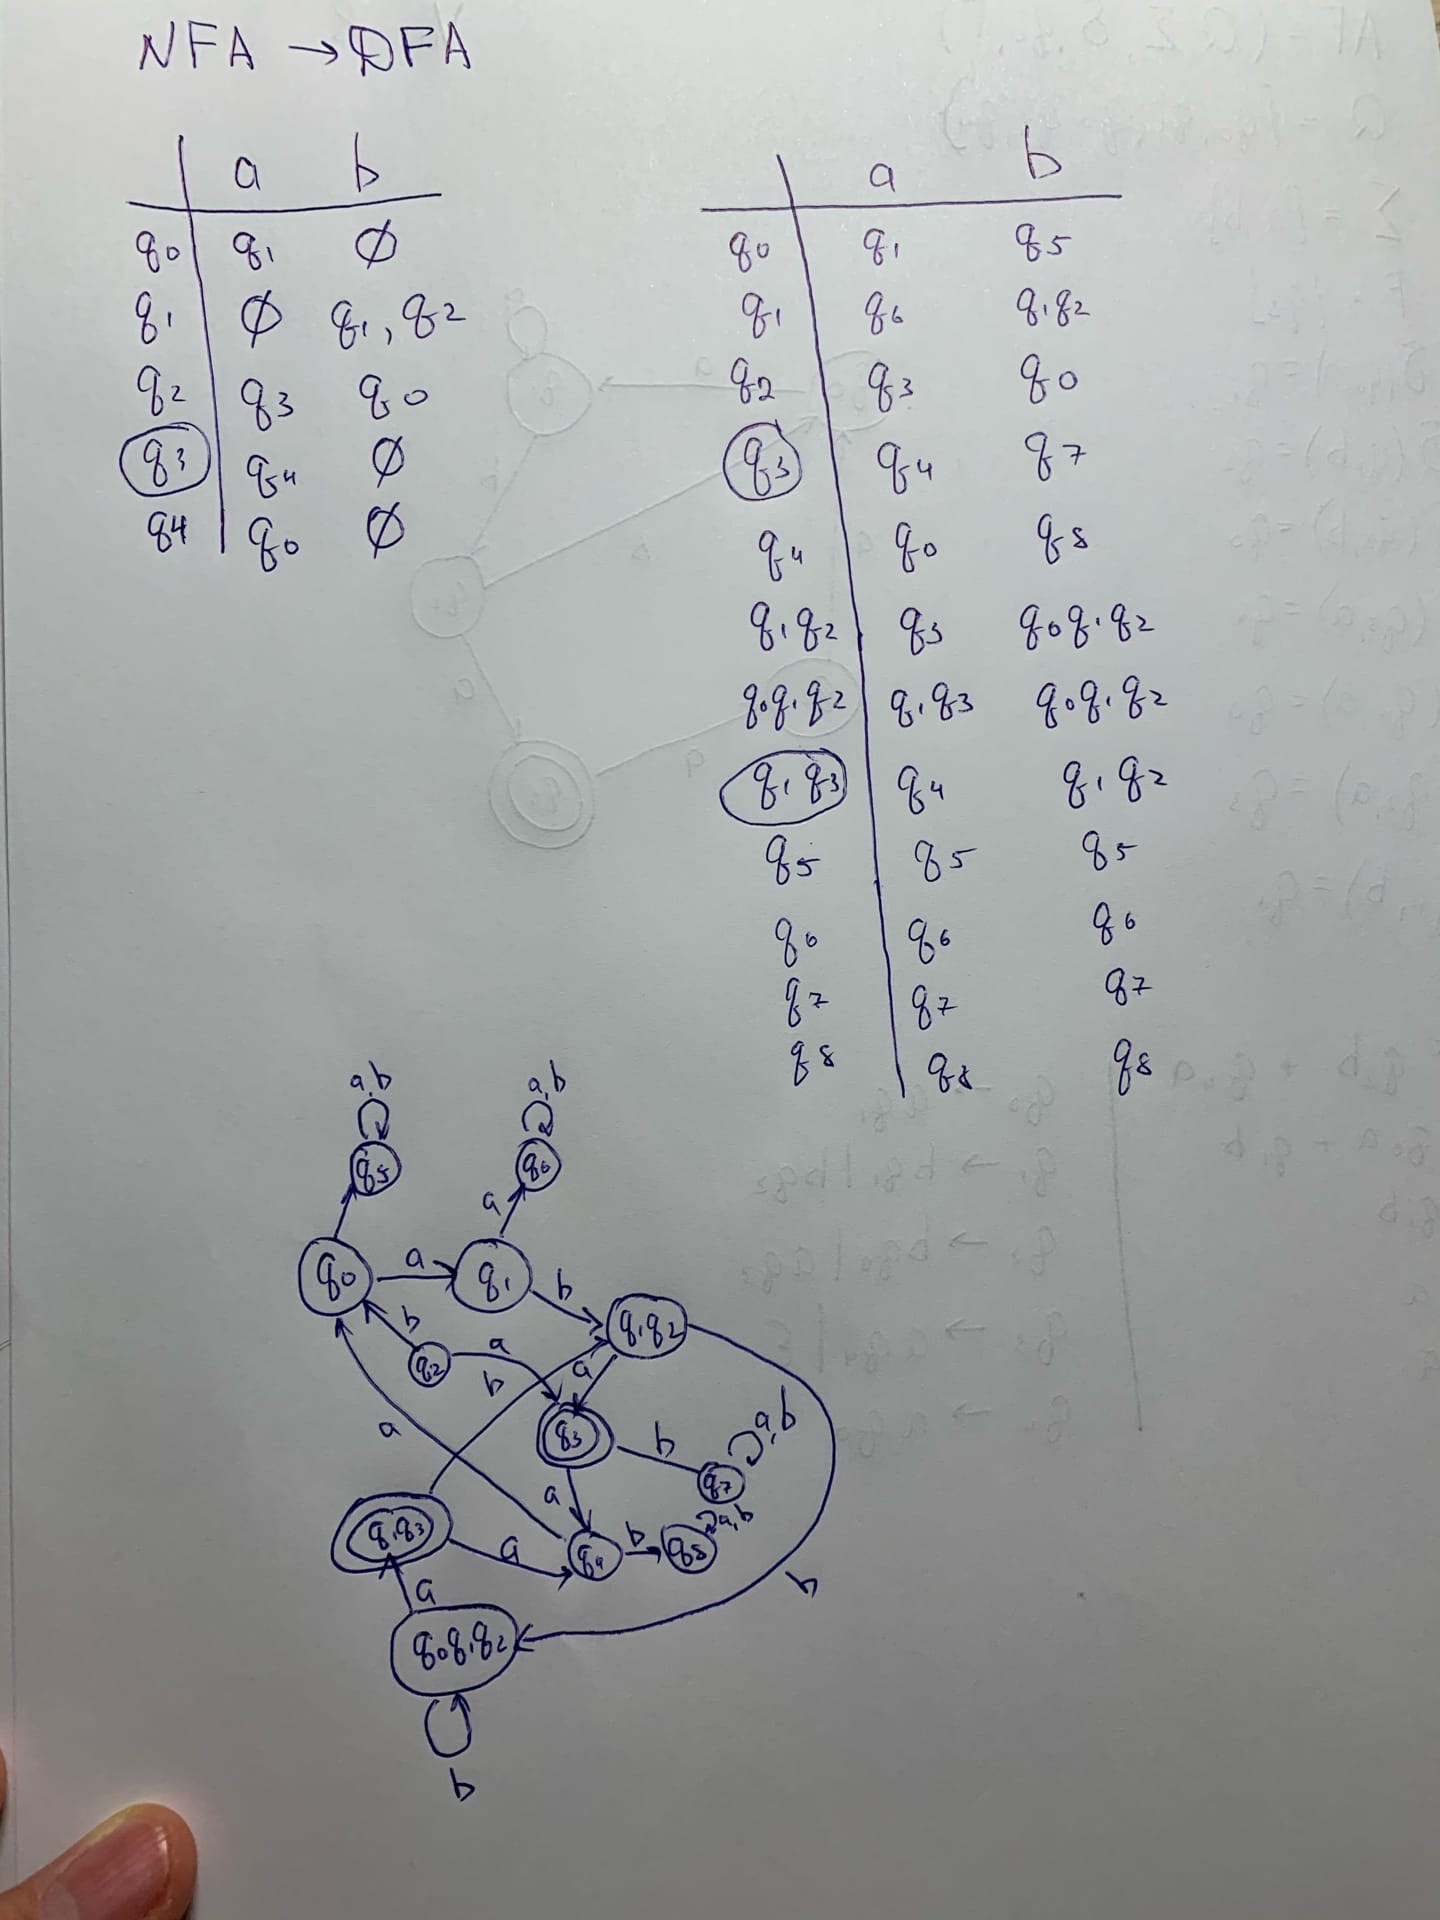 NFA → DFA
a b
q0 q1 ∅
q1 ∅ q1, q2
q2 q3 q0
q3 q4 ∅
q4 q0 ∅
a b
q0 q1 q5
q1 q6 q1q2
q2 q3 q0
q3 q4 q7
q4 q0 q8
q1q2 q3 q0q1q2
q0q1q2 q1q3 q0q1q2
q1q3 q4 q1q2
q5 q5 q5
q6 q6 q6
q7 q7 q7
q8 q8 q8
a,b a,b
q5 q6
a
q0 a q1 b
q1q2
b a
q2 b a
q3 b a,b
a q7
a a,b
q1q3 a q4 b q8
a b
q0q1q2
b